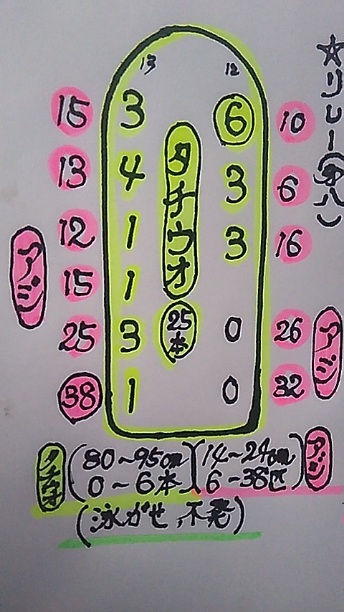 ☆リレー(中八)
13 12
15 3 6 10
13 4 3 6
12 1 3 16
15 1
25 3 0 26
38 1 0 32
タチウオ
25本
アジ
アジ
タチウオ (80~95cm) (14~24cm) アジ
0~6本 6~38匹
(泳がせ、不発)